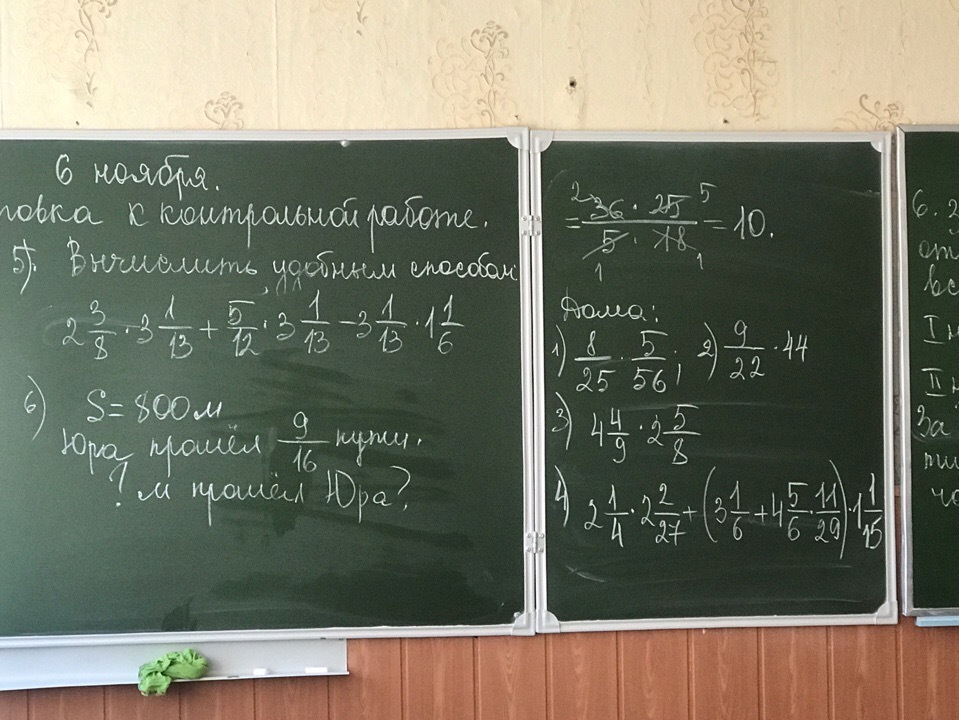 6 ноября.
к контрольной работе.
5). Вычислить удобным способом
2 3/8 · 3 1/13 + 5/12 · 3 1/13 − 3 1/13 · 1 1/6
6) S = 800 м
Юра прошёл 9/16 пути.
? м прошёл Юра?
= 36 · 25 / 5 · 18 = 10.
2 5
1 1
Дома:
1) 8/25 · 5/56 ; 2) 9/22 · 44
3) 4 4/9 · 2 5/8
4) 2 1/4 · 2 2/27 + (3 1/6 + 4 5/6 · 11/29) · 1 1/15
6. 2
I
II
За